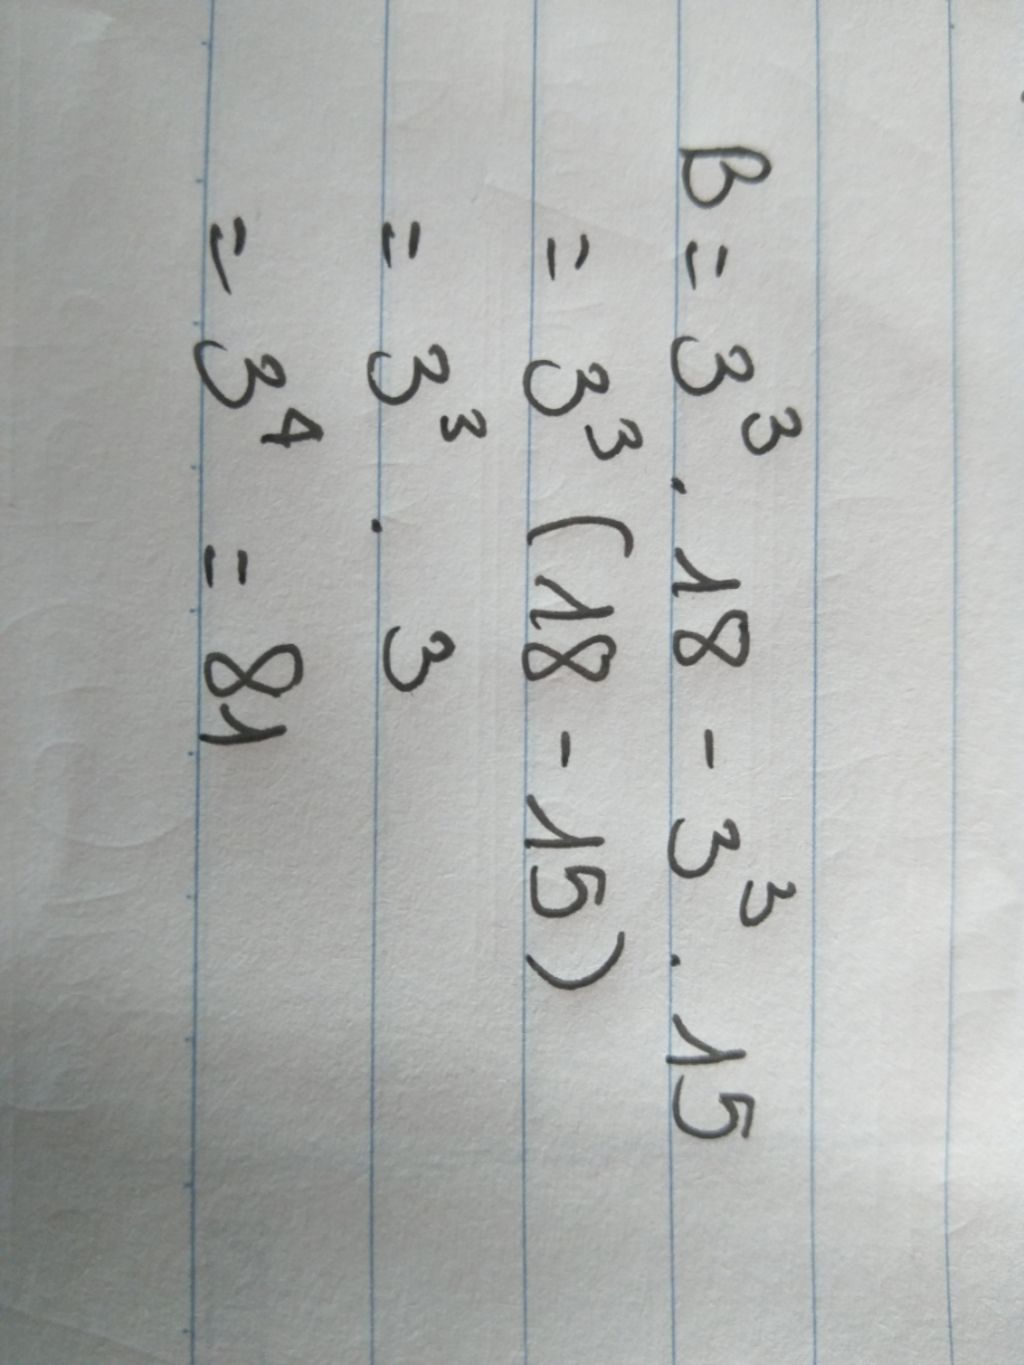 B = 3³ . 18 - 3³ . 15
= 3³ (18 - 15)
= 3³ . 3
= 3⁴ = 81